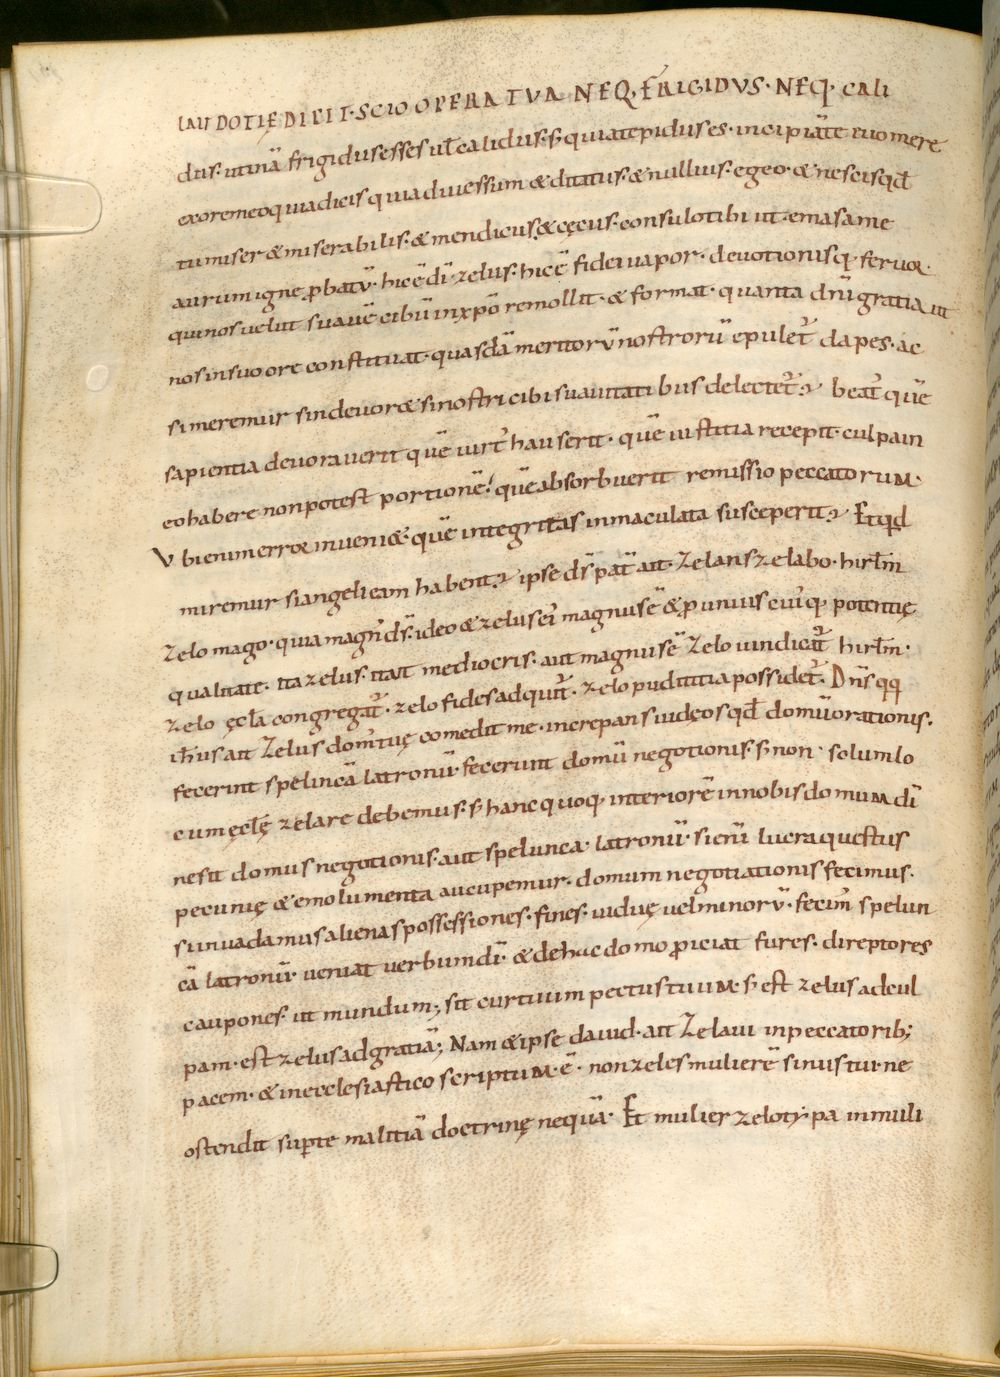 LAUDOTIĘ DICIT · SCIO OPERA TVA NEQ, FRIGIDVS · NEQ· CALI
dus · utinā frigidus esses ul̄ calidus · s; quia tepidus es · incipiā te euomere
ex ore meo quia dicis quia diues sum & ditatus · & nullius · egeo · & nescis qd̄
tu miser & miserabilis · & mendicus · & cęcus · consulo tibi ut · emas a me
aurum igne ꝓbatū · hic ē dī zelus · hic ē fidei uapor · deuotionisq· feruor ·
qui nos uelut suauē cibū in xp̄o remollit · & format · quanta dn̄i gratia ut
nos in suo ore constituat · quasdā meritorū nostrorū epulet᷑ dapes · ac
si meremur sin deuoret si nostri cibi suauitatibus delectet᷑ · beat᷑ quē
sapientia deuorauerit quē uirt᷑ hauserit · quē iustitia recepit · culpa in
eo habere non potest portionē · quē absorbuerit remissio peccatoruM ·
Vbi enim error inueniet · quē integritas inmaculata susceperit · Et qd
miremur si angeli eam habent · ipse ds̄ pat᷑ ait · Zelans zelabo · hirl̄m
Zelo mago · quia magn᷑ ds̄ · ideo & zelus ei᷑ magnus ē & ꝓ unius cui᷑q· potentię
qualitate · ita zelus · ut aut mediocris · aut magnus ē Zelo uindicat᷑ hirl̄m ·
Zelo ęcl̄a congregat᷑ · zelo fides adquirit᷑ · zelo pudititia possidet᷑ · Dn̄s qq
ih̄us ait Zelus dom᷑ tuę comedit me · increpans iudęos qd̄ domū orationis ·
fecerint speluncā latronū · fecerunt domū negotionis · s; non · solum lo
cum ęcl̄ę zelare debemus · s; hanc quoq· interiorē in nobis domuM dī
ne sit domus negotionis · aut spelunca · latronū · si enī lucra questus
pecunię & emolumenta aucupemur · domum negotiationis fecimus ·
si inuadamus alienas possessiones · fines · uiduę uel minorū · fecim᷑ spelun
cā latronū · ueniat uerbum dī · & de hac domo ꝓiciat fures · direptores
caupones · ut mundum; sit curtuum pectus tuuM · s; est zelus ad cul
pam · est zelus ad gratiā; Nam & ipse dauid · ait Zelaui in peccatorib;
pacem · & in ecclesiastico scriptuM · ē · non zeles mulierē sinus tui · ne
ostendit sup te malitiā doctrinę nequā · Et mulier zelotypa in muli